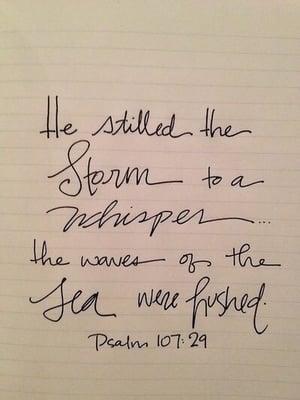 He stilled the
Storm to a
whisper...
the waves of the
Sea were hushed.
Psalm 107:29